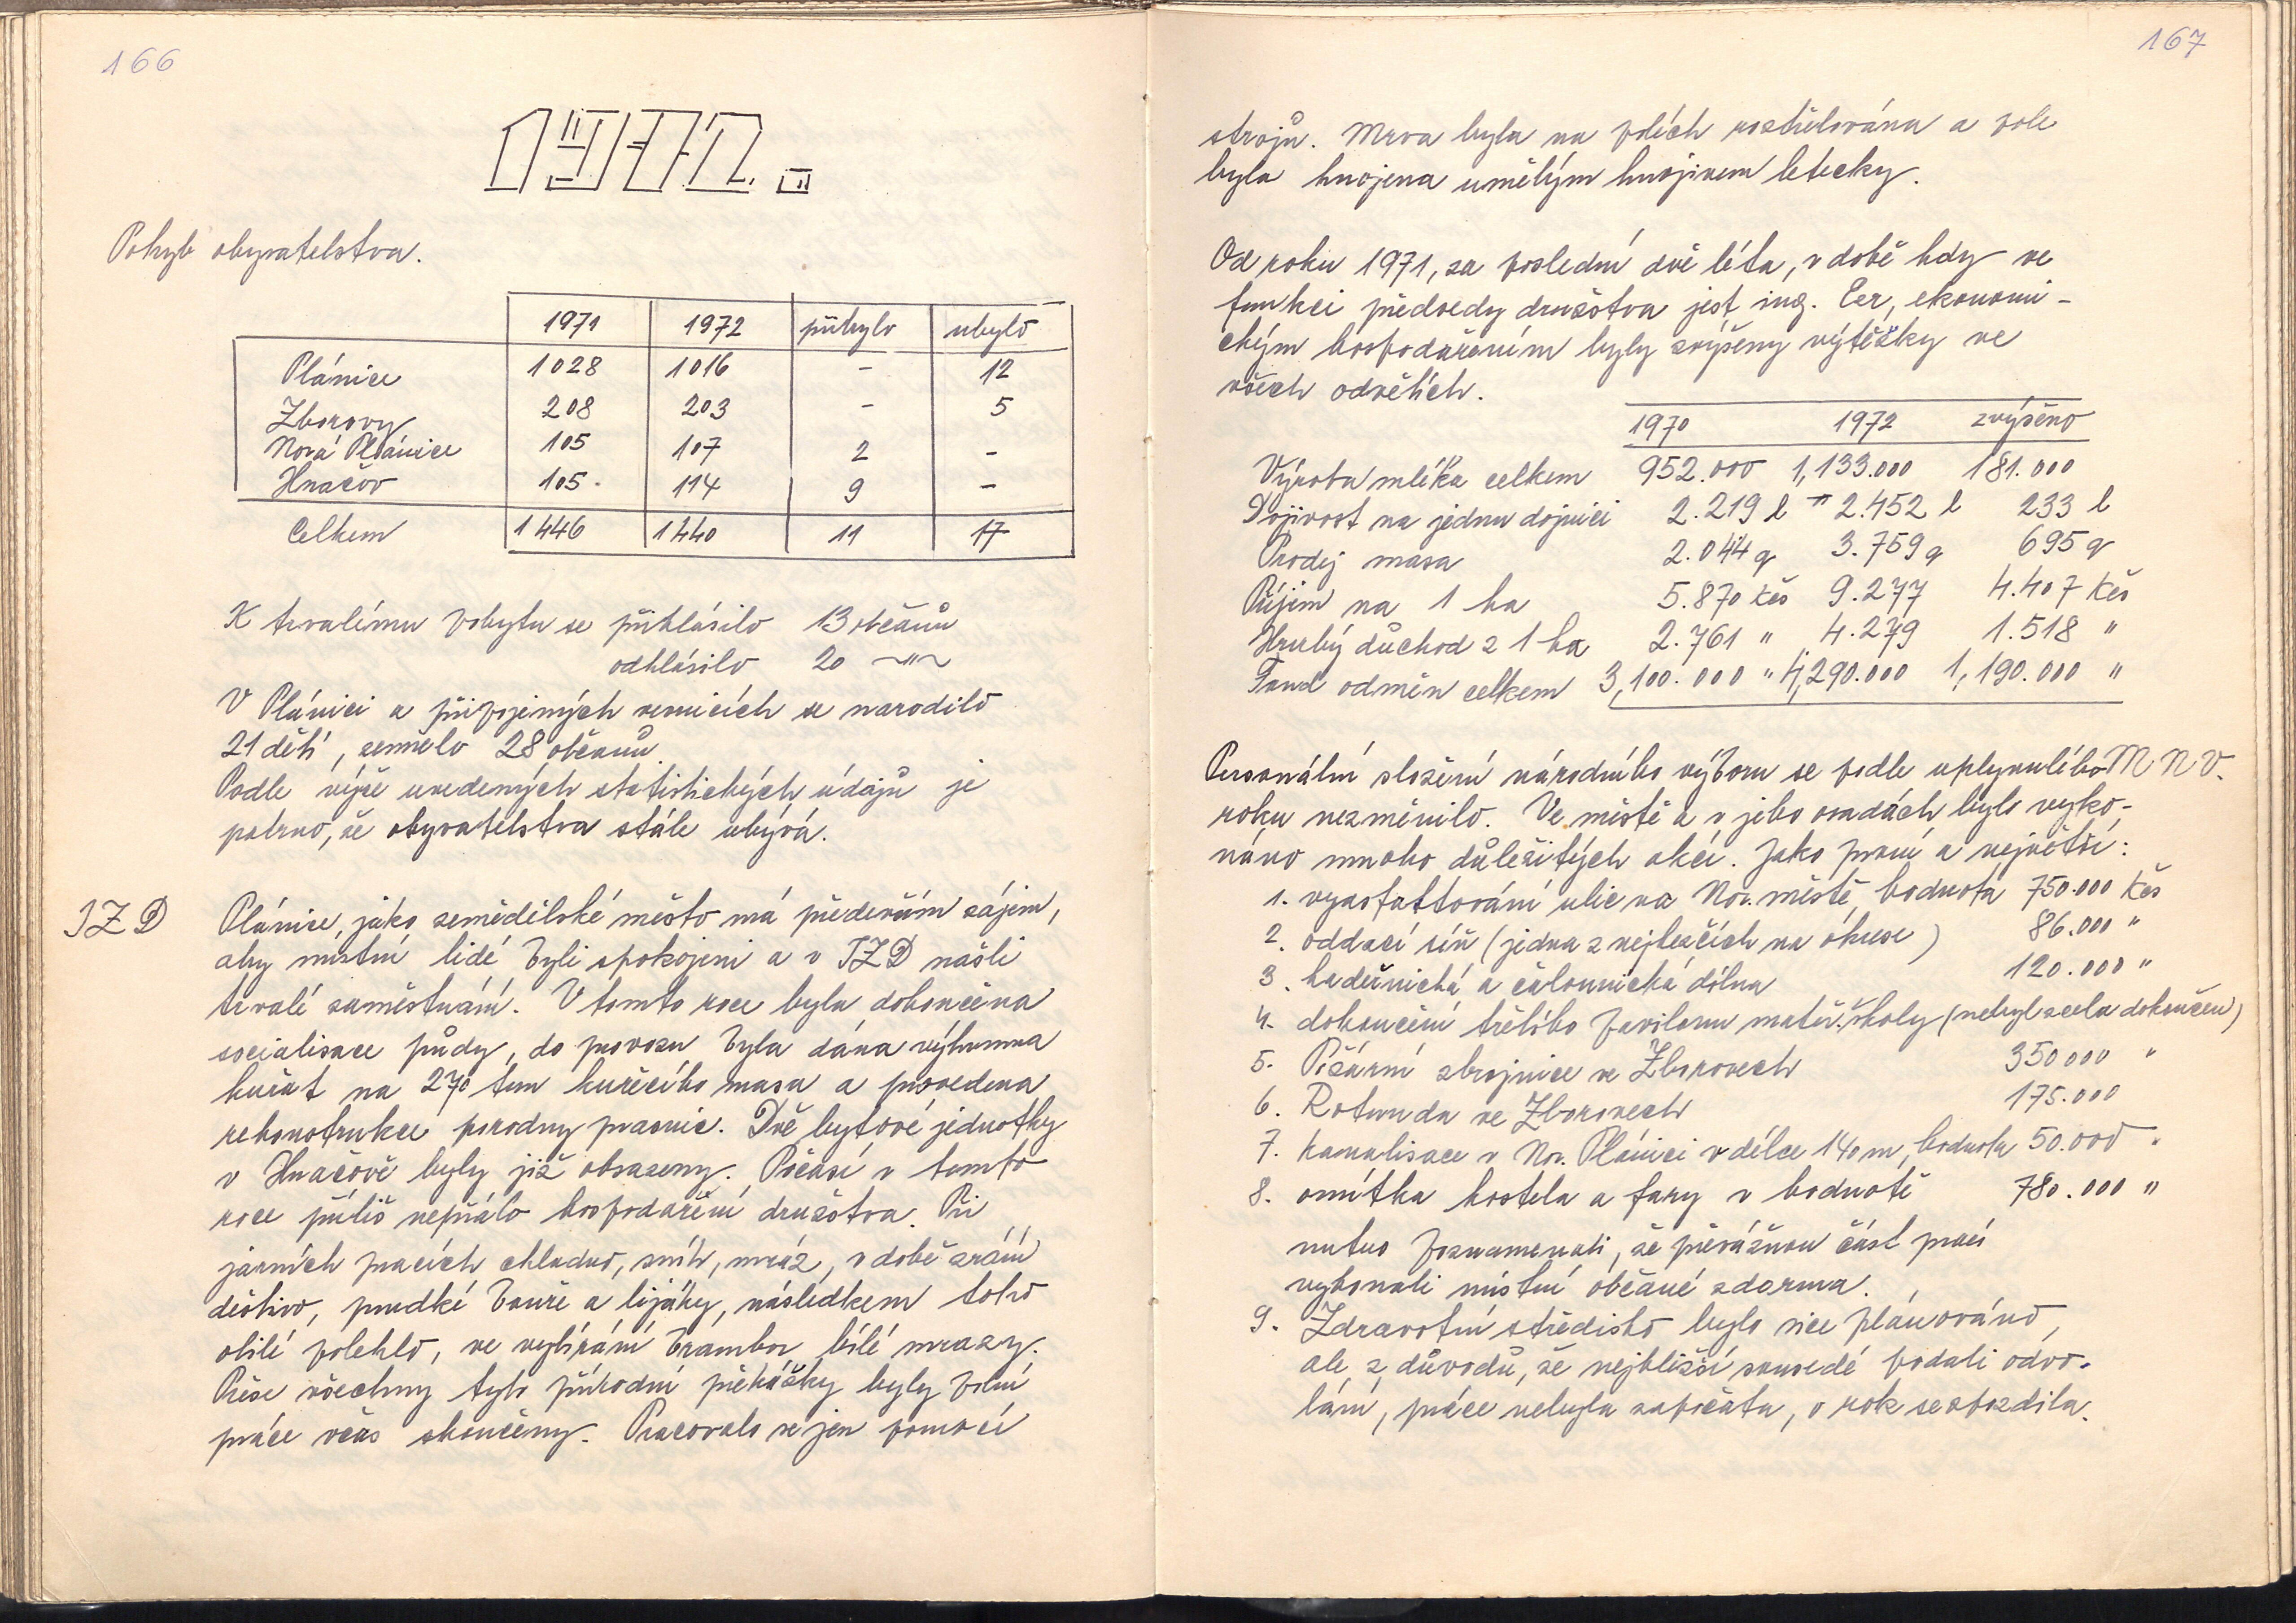 166
1972.
Pohyb obyvatelstva.
1971 1972 přibylo ubylo
Plánice 1028 1016 - 12
Zborovy 208 203 - 5
Nová Plánice 105 107 2 -
Hnačov 105 114 9 -
Celkem 1446 1440 11 17
K trvalému pobytu se přihlásilo 13 občanů
odhlásilo 20 —"—
V Plánici a připojených vesnicích se narodilo
21 dětí, zemřelo 28 občanů.
Podle výše uvedených statistických údajů je
patrno, že obyvatelstva stále ubývá.
JZD Plánice, jako zemědělské město má především zájem,
aby místní lidé byli spokojeni a v JZD našli
trvalé zaměstnání. V tomto roce byla dokončena
socialisace půdy, do provozu byla dána výkrmna
kuřat na 270 tun kuřecího masa a provedena
rekonstrukce porodny prasnic. Dvě bytové jednotky
v Hnačově byly již obsazeny. Počasí v tomto
roce příliš nepřálo hospodaření družstva. Při
jarních pracích chladno, sníh, mráz, v době zrání
deštivo, prudké bouře a lijáky, následkem toho
obilí polehlo, ve vybírání brambor bílé mrazy.
Přese všechny tyto přírodní překážky byly polní
práce včas skončeny. Pracovalo se jen pomocí
167
strojů. Mrva byla na polích roztřelována a pole
byla hnojena umělým hnojivem letecky.
Od roku 1971, za poslední dvě léta, v době kdy ve
funkci předsedy družstva jest ing. Eer, ekonomi-
ckým hospodařením byly zvýšeny výtěžky ve
všech odvětích.
1970 1972 zvýšeno
Výroba mléka celkem 952.000 1,133.000 181.000
Dojivost na jednu dojnici 2.219 l 2.452 l 233 l
Prodej masa 2.044 q 3.759 q 695 q
Příjem na 1 ha 5.870 Kčs 9.277 4.407 Kčs
Hrubý důchod z 1 ha 2.761 " 4.279 1.518 "
Fond odměn celkem 3,100.000 " 4,290.000 1,190.000 "
Personální složení národního výboru se podle uplynulého MNV.
roku nezměnilo. Ve městě a v jeho osadách bylo vyko-
náno mnoho důležitých akcí. Jako první a největší:
1. vyasfaltování ulic na Nov. městě, hodnota 750.000 Kčs
2. oddací síň (jedna z nejlepších na okrese) 86.000 "
3. kadeřnická a čalounická dílna 120.000 "
4. dokončení třetího pavilonu mateř. školy (nebyl zcela dokončen)
5. Požární zbrojnice ve Zborovech 350000 "
6. Rotunda ve Zborovech 175.000
7. Kanalisace v Nov. Plánici v délce 140 m, hodnota 50.000 "
8. omítka kostela a fary v hodnotě 780.000 "
nutno poznamenati, že převážnou část prací
vykonali místní občané zdarma.
9. Zdravotní středisko bylo sice plánováno,
ale z důvodů, že nejbližší sousedé podali odvo-
lání, práce nebyla započata, o rok se opozdila.